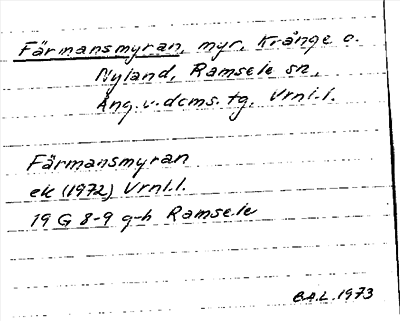 Färmansmyran, myr, Krånge o.
Nyland, Ramsele sn,
Ång.v.dcms.tg, Vrnl.l.
Färmansmyran
ek (1972) Vrnl.l.
19 G 8-9 g-h Ramsele
B.A.L. 1973